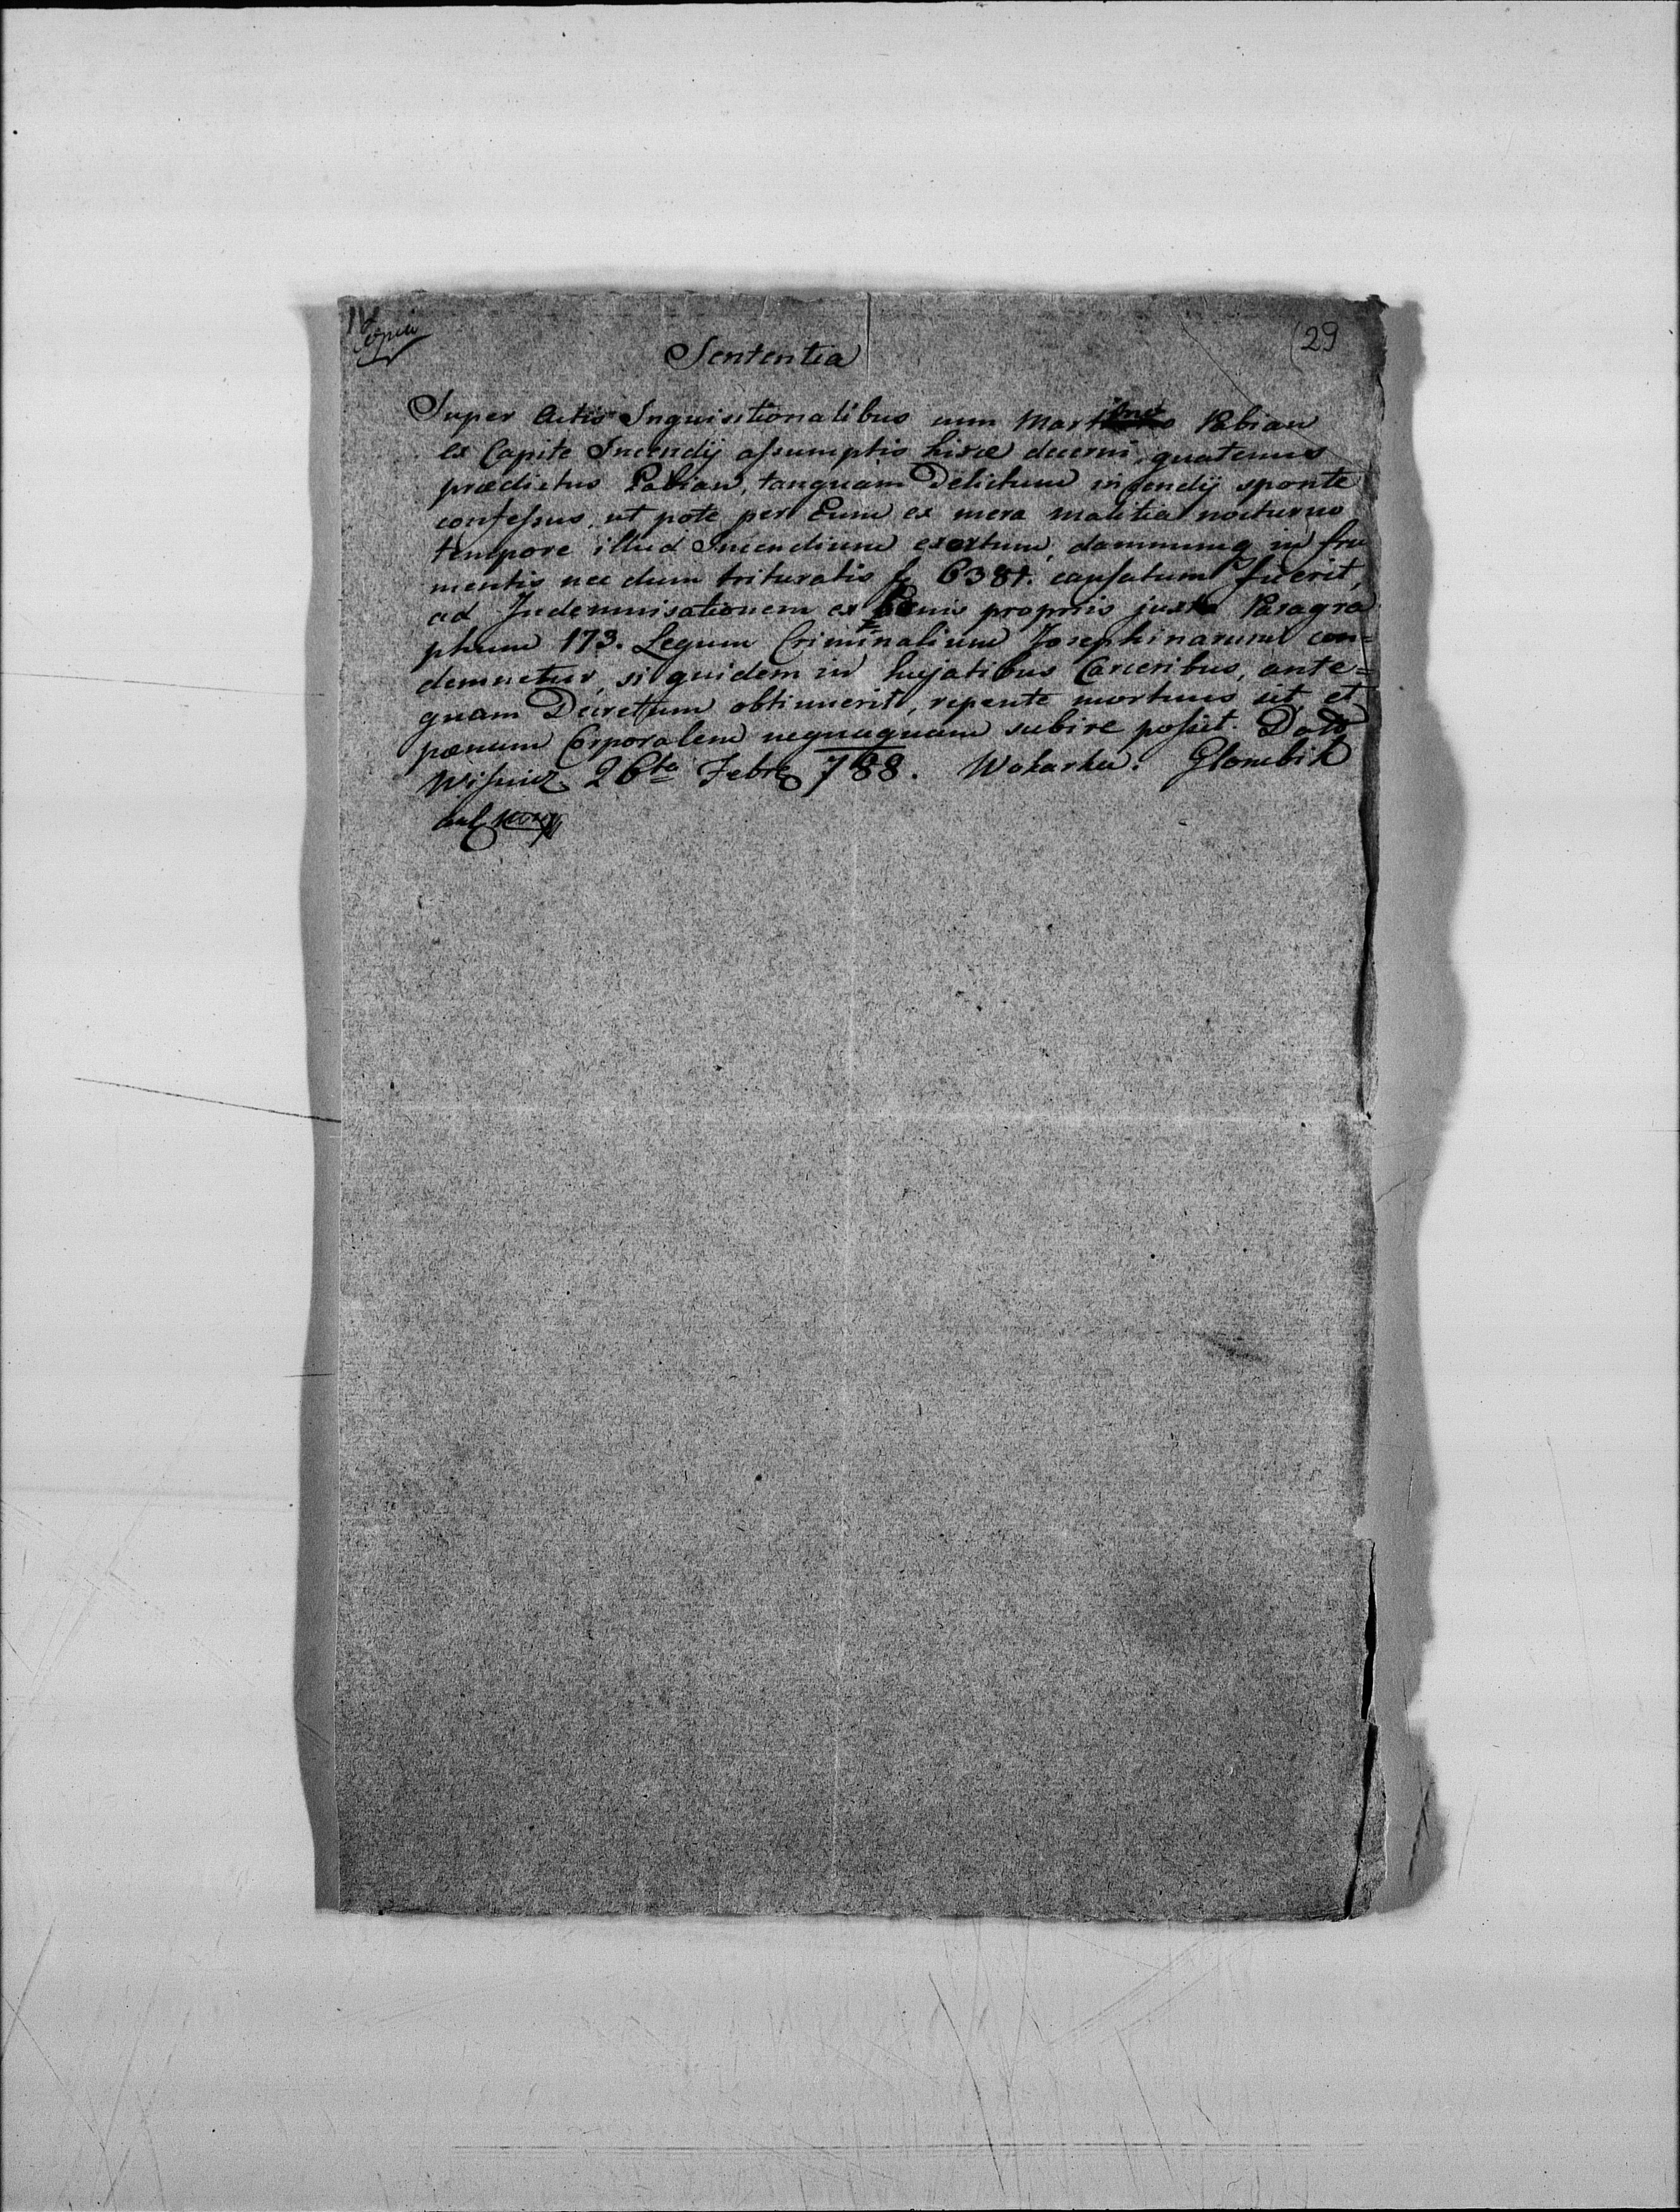 Copia
29
Sententia
Super Actis Inquisitionalibus cum Martino Pabian
ex Capite Incendij assumptis hisce decerni, quatenus
prædictus Pabian, tanquam Delictum incendij sponte
confessus, ut pote per Eum ex mera malitia nocturno
tempore illud Incendium exortum, damnumq in fru
mentis nec dum trituratis f 638 causatum fuerit,
ad Indemnisationem ex Bonis propriis juxta Paragra
phum 173. Legum Criminalium Josephinarum con=
demnetur, si quidem in hujatibus Carceribus, ante=
quam Decretum obtinuerit, repente mortuus sit, et
pœnam Corporalem nequaquam subire possit. Dato
Wisnicz 26ta Febr 788. Wokarka. Glombik